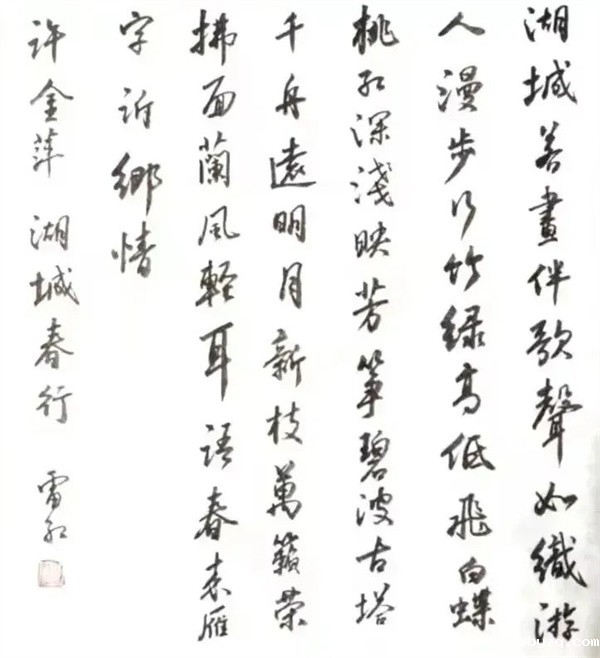 湖城善畫伴歌聲如織游
人漫步行竹綠高低飛白蝶
桃紅深淺映芳箏碧波古塔
千舟遠明月新枝萬籟榮
拂面蘭風輕耳語春來雁
字訴鄉情
許金萍 湖城春行 雷紅